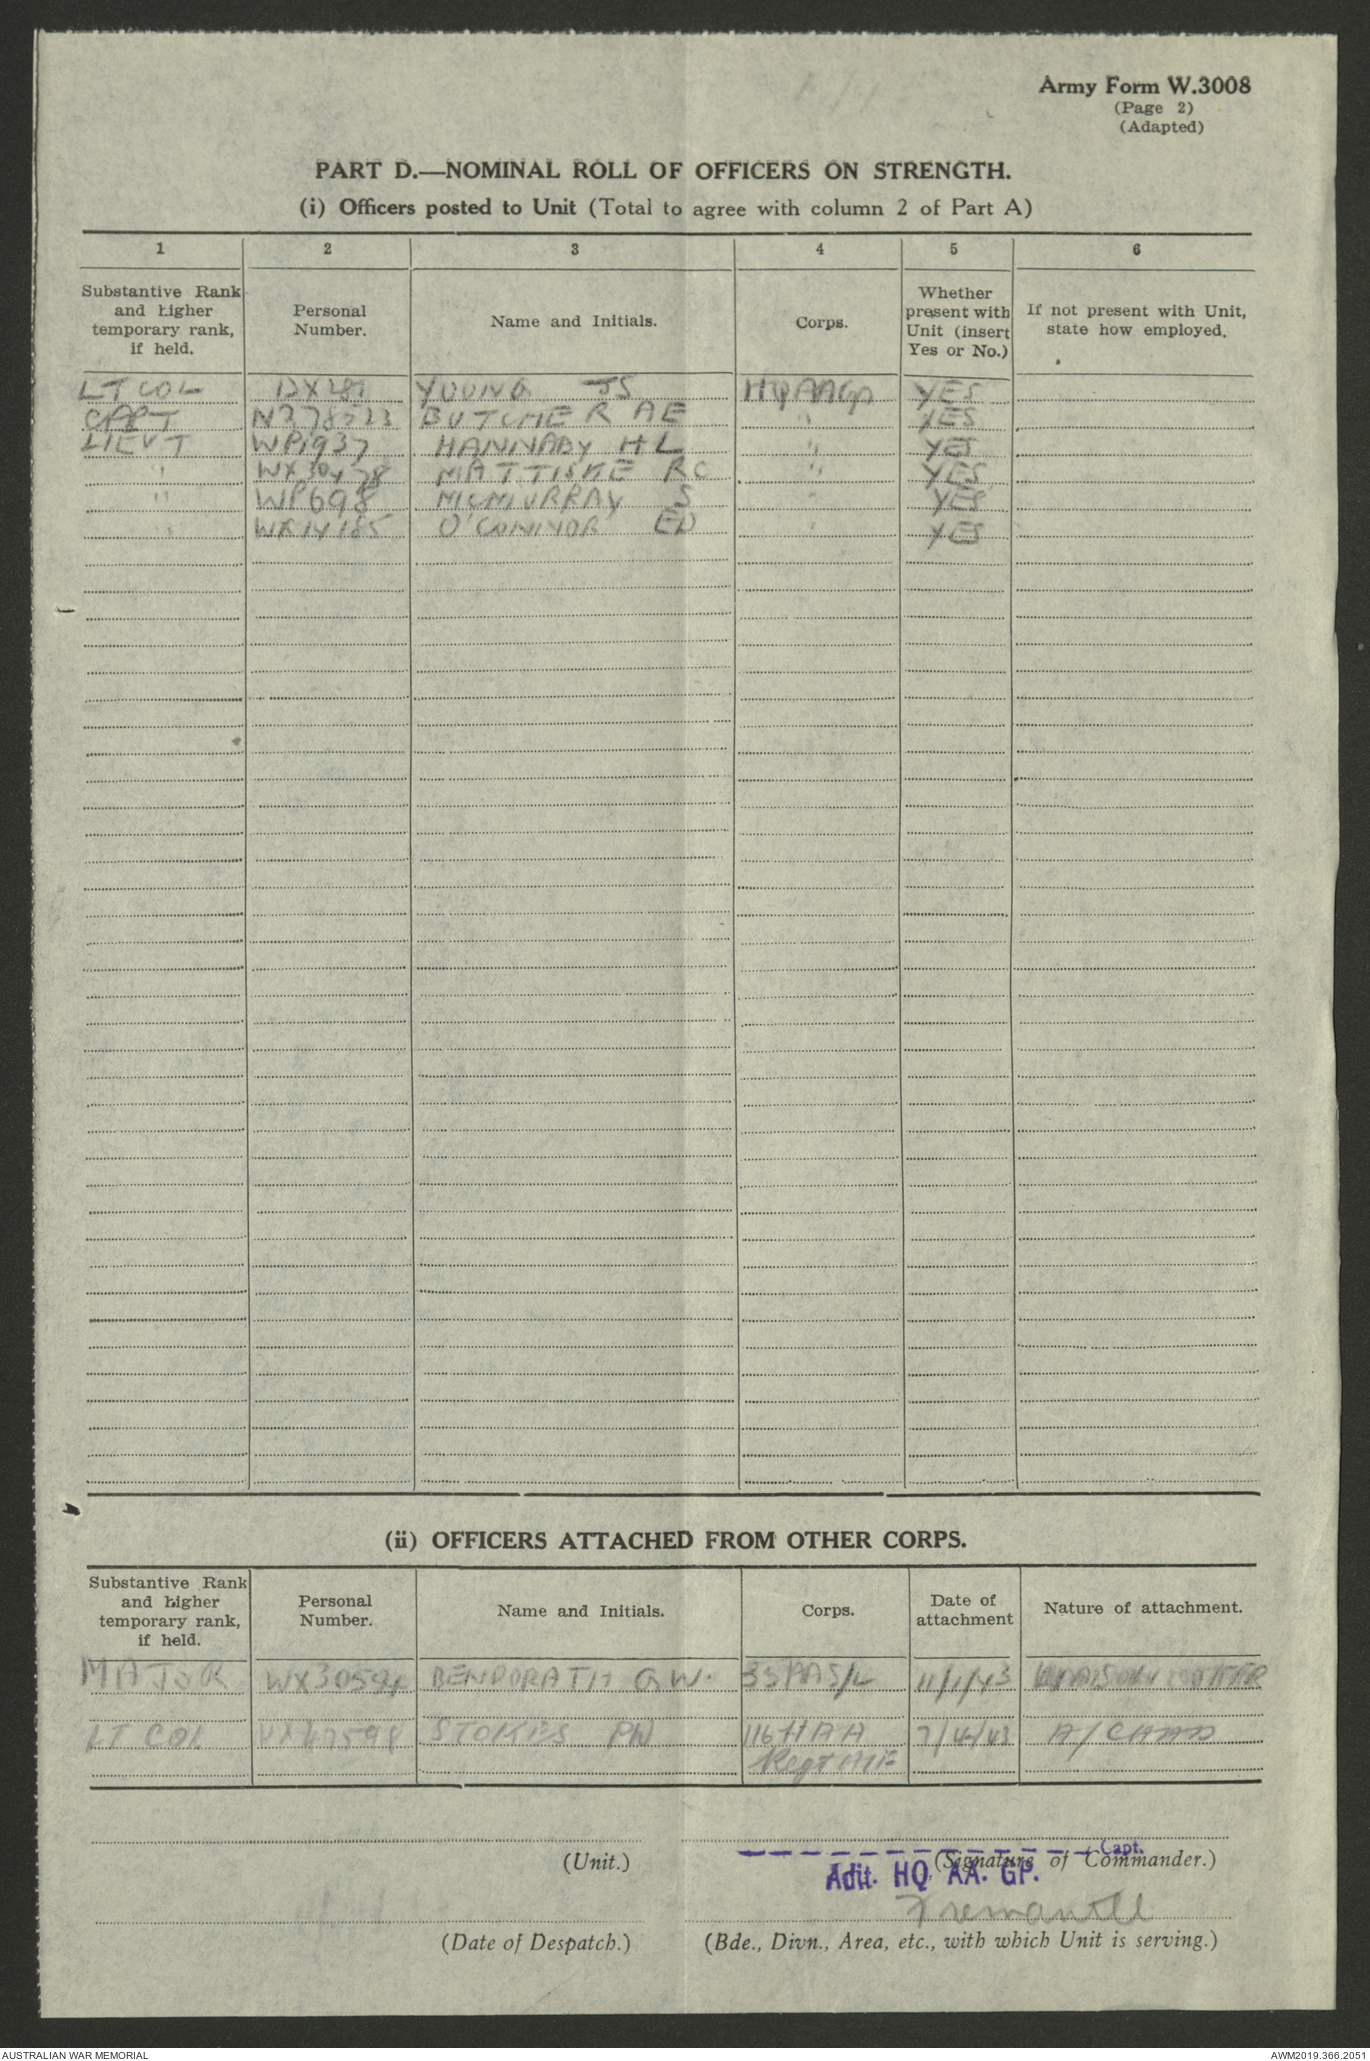 Army Form W.3008
(Page 2)
(Adapted)
PART D.—NOMINAL ROLL OF OFFICERS ON STRENGTH.
(i) Officers posted to Unit (Total to agree with column 2 of Part A)
1 2 3 4 5 6
Substantive Rank and higher temporary rank, if held. Personal Number. Name and Initials. Corps. Whether present with Unit (insert Yes or No.) If not present with Unit, state how employed.
LT COL DX281 YOUNG JS HQAAGP YES
CAPT N278523 BUTCHER AE " YES
LIEUT WP1937 HANNABY HL " YES
" WX30478 MATTISKE RC " YES
" WP698 McMURRAY S " YES
" WX14185 O'CONNOR ED " YES
(ii) OFFICERS ATTACHED FROM OTHER CORPS.
Substantive Rank and higher temporary rank, if held. Personal Number. Name and Initials. Corps. Date of attachment Nature of attachment.
MAJOR WX30594 BENDORATH GW. 33AAS/L 11/1/43
LT COL STOKES PW 116 HAA 7/4/43 A/COMD
Regt AIF
(Unit.)
Capt.
(Signature of Commander.)
Adjt. HQ. AA. GP.
Fremantle
(Date of Despatch.)
(Bde., Divn., Area, etc., with which Unit is serving.)
AUSTRALIAN WAR MEMORIAL
AWM2019.366.2051